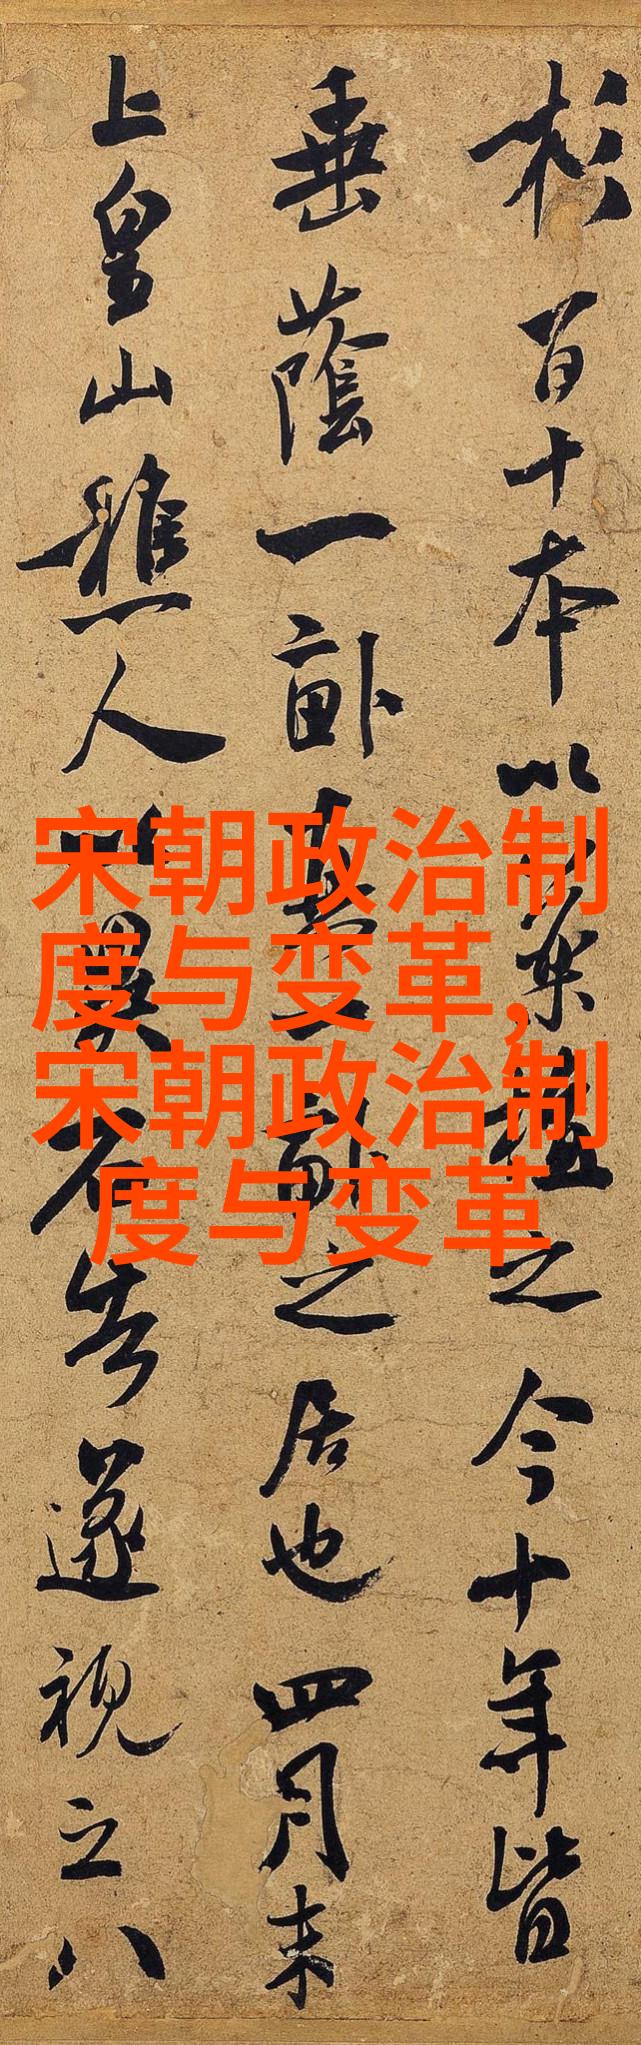 杉百十本以藥植之今十年皆
垂蔭一畝真之居也四月末
上皇山樵人以異石告遂視之八
宋朝政治制
度与变革,
宋朝政治制
度与变革